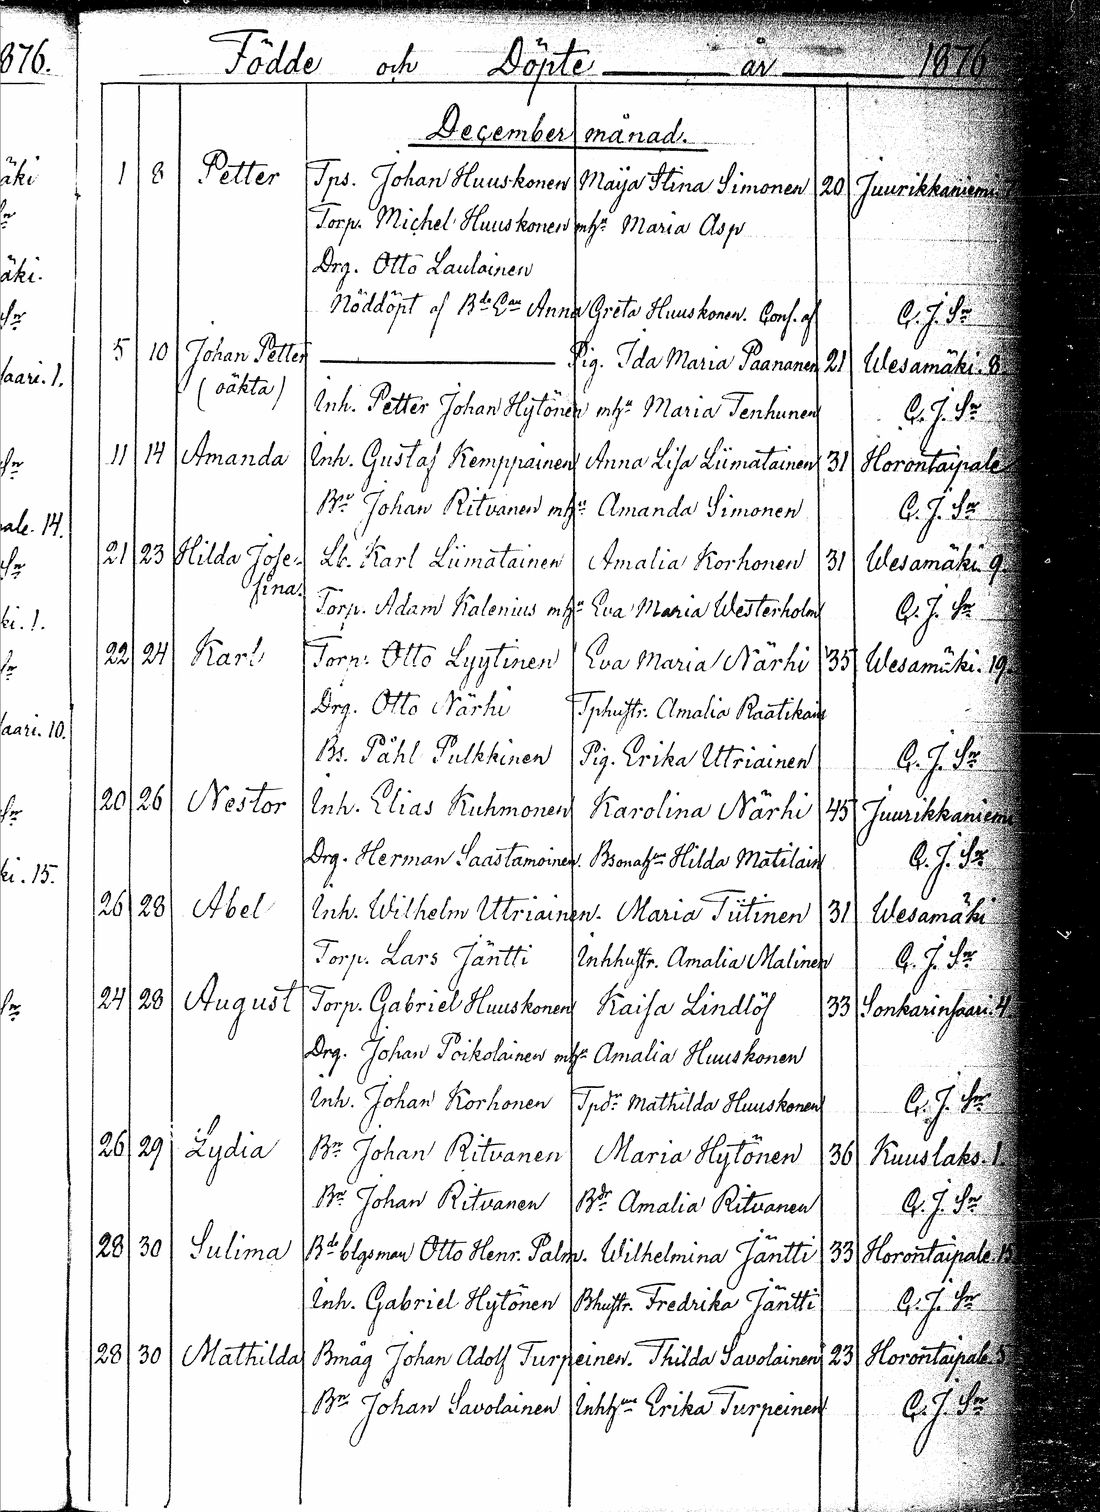 876.
Födde och Döpte år 1876
December månad.
äki
1 8 Petter Tps. Johan Huuskonen Maija Stina Simonen 20 Juurikkaniemi
Torp. Michel Huuskonen mhu Maria Asp
äki.
Drg. Otto Laulainen
Nöddöpt af Bde Eau Anna Greta Huuskonen. Conf. af C. J. Sn
aari. 1.
5 10 Johan Petter Pig. Ida Maria Paananen 21 Wesamäki. 8.
(oäkta)
Inh. Petter Johan Hytönen mhu Maria Tenhunen C. J. Sn
11 14 Amanda Inh. Gustaf Kemppainen Anna Lisa Liimatainen 31 Horontaipale
Bn Johan Ritvanen mhu Amanda Simonen C. J. Sn
ale. 14.
21 23 Hilda Jose- Lb. Karl Liimatainen Amalia Korhonen 31 Wesamäki 9.
fina.
Torp. Adam Kalenius mhu Eva Maria Westerholm C. J. Sn
ki. 1.
22 24 Karl Torp. Otto Lyytinen Eva Maria Närhi 35 Wesamäki. 19.
Drg. Otto Närhi Tphustr. Amalia Raatikain
aari. 10.
Bs. Påhl Pulkkinen Pig. Erika Utriainen C. J. Sn
20 26 Nestor Inh. Elias Kuhmonen Karolina Närhi 45 Juurikkaniemi
Drg. Herman Saastamoinen. Bsonahu Hilda Matilain C. J. Sn
ki. 15.
26 28 Abel Inh. Wilhelm Utriainen. Maria Tiitinen 31 Wesamäki
Torp. Lars Jäntti Inhhustr. Amalia Malinen C. J. Sn
24 28 August Torp. Gabriel Huuskonen Kaisa Lindlöf 33 Sonkarinsaari. 4.
Drg. Johan Poikolainen mhu Amalia Huuskonen
Inh. Johan Korhonen Tpdr Mathilda Huuskonen C. J. Sn
26 29 Lydia Bn Johan Ritvanen Maria Hytönen 36 Kuuslaks. 1.
Bn Johan Ritvanen Bdr Amalia Ritvanen C. J. Sn
28 30 Sulima Bde blgsman Otto Henr. Palm. Wilhelmina Jäntti 33 Horontaipale.
Inh. Gabriel Hytönen Bhustr. Fredrika Jäntti C. J. Sn
28 30 Mathilda Bmåg Johan Adolf Turpeinen. Thilda Savolainen 23 Horontaipale. 5
Bn Johan Savolainen Inhhu Erika Turpeinen C. J. Sn